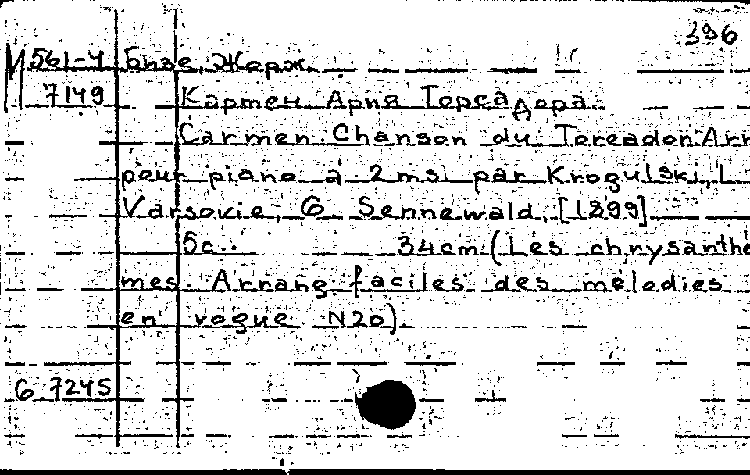 396
И 561-4 Бизе, Жорж.
7149 Кармен. Ария Тореадора.
Carmen. Chanson du Toreador. Arr
pour piano à 2 ms. par Krogulski, L
Varsovie, G Sennewald, [1899]
5c. 34cm. (Les chrysanthè
mes. Arrang. faciles des mélodies
en vogue N20).
G 7245